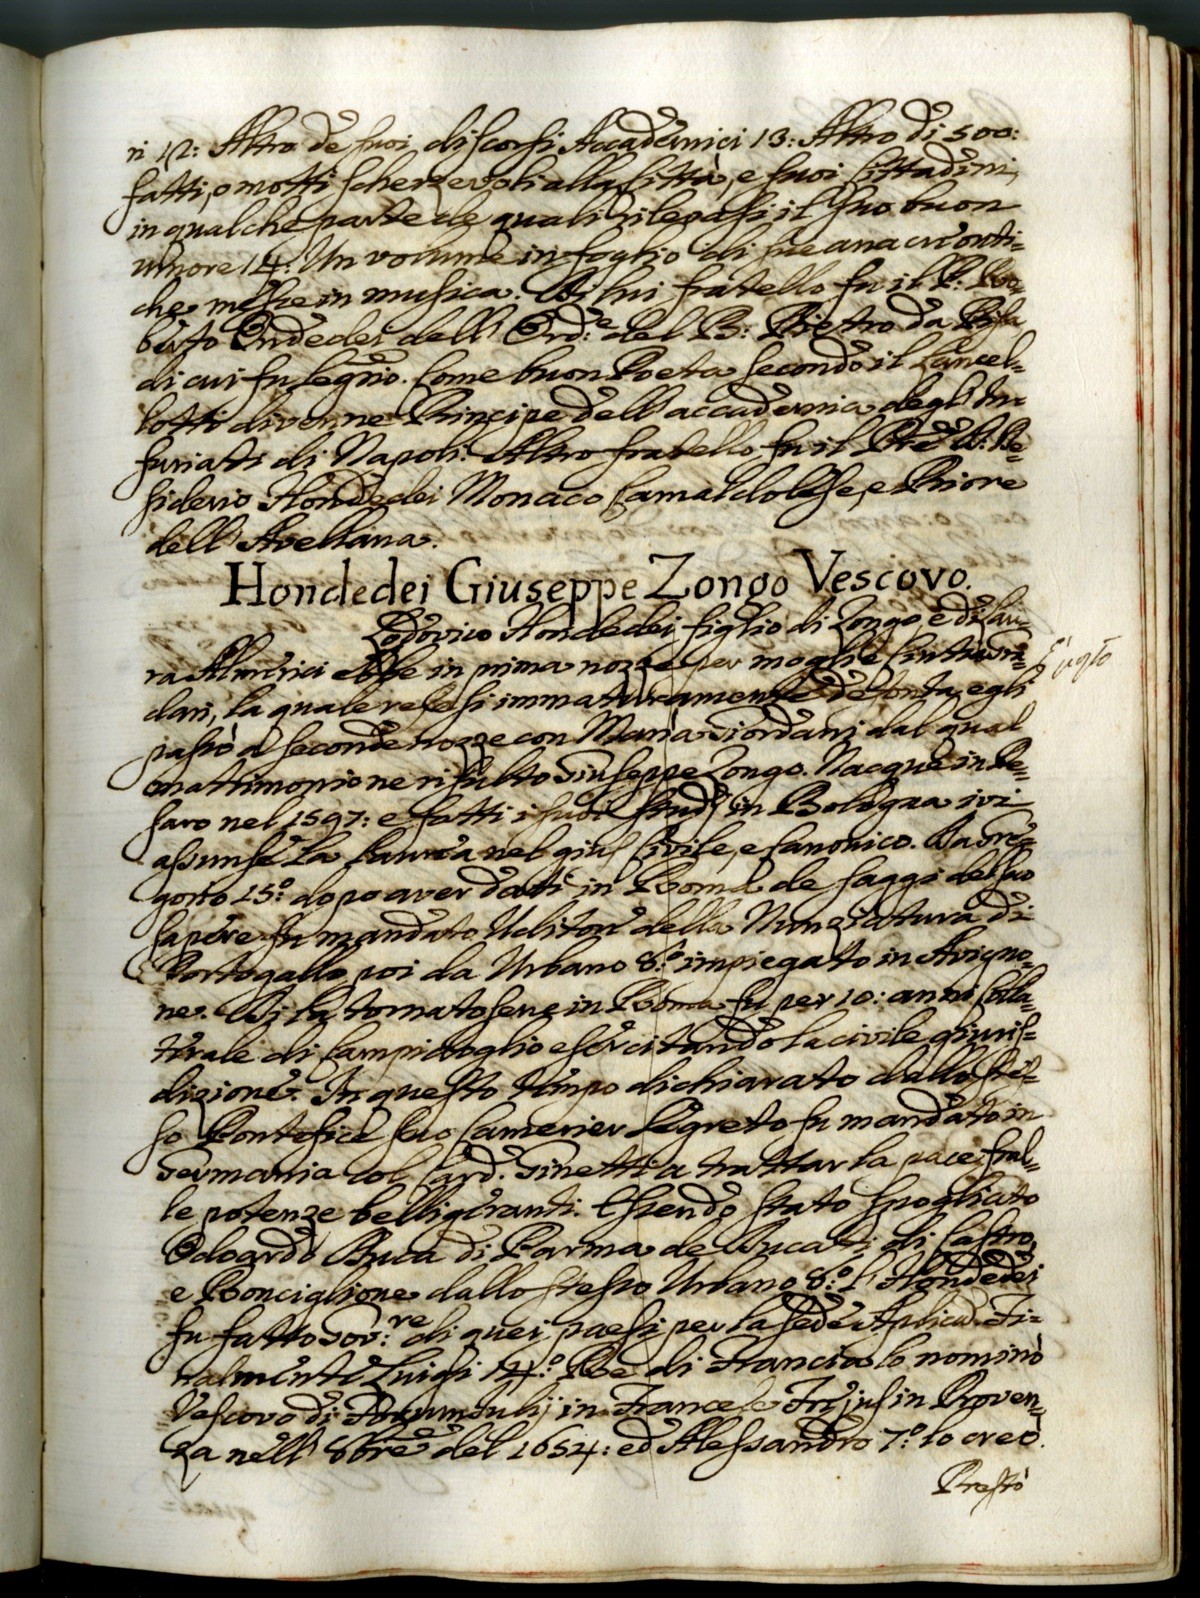 ri 12: Altro de suoi discorsi Accademici 13: Altro di 500:
fatti, o motti scherzevoli alla Città, e suoi Cittadini,
in qualche parte de quali rilevasi il suo buon
umore 14: Un volume in foglio di sue anacreonti=
che messe in musica. Di lui fratello fu il P: Ro=
berto Ondedei dell' Ord:e del B: Pietro da Pisa
di cui fu Legnio. Come buon Poeta secondo il Lancel=
lotti divenne Principe dell' accademia degl' In=
furiati di Napoli. Altro fratello fu il Pre D: De=
siderio Hondedei Monaco Camaldolese, e Priore
dell' Avellana.
Hondedei Giuseppe Zongo Vescovo.
Lodovico Hondedei figlio di Zongo e di Lau=
ra Almerici ebbe in prima nozze per moglie
dari, la quale resasi immaturamente defonta, egli
passò a seconde nozze con Maria Giordani dal qual
mattimonio ne risultò Giuseppe Zongo. Nacque in Pe=
saro nel 1597: e fatti i suoi studj in Bologna ivi
assunse la Laurea nel gius Civile, e Canonico. Da Gre=
gorio 15:o dopo aver dati in Roma de saggi del suo
sapere fu mandato Uditore della Nunziatura di
Portogallo, poi da Urbano 8:o impiegato in Avigno=
ne. Di là tornatosene in Roma fu per 10: anni Colla=
terale di Campidoglio esercitando la civile giuris=
dizione. In questo tempo dichiarato dallo stes=
so Pontefice suo Camerier Segreto fu mandato in
Germania col Card. Ginetti a trattar la pace fral=
le potenze belligeranti. Essendo stato spogliato
Odoardo Duca di Parma de Ducati di Castro,
e Ronciglione dallo stesso Urbano 8:o l'Hondedei
fu fatto Gov:re di quei paesi per la Sede Aplica. Fi=
nalmente Luigi 14:o Re di Francia lo nominò
Vescovo di in Francese Frejus in Proven=
za nell' 8bre del 1654: ed Alessandro 7:o lo creò.
Prestò